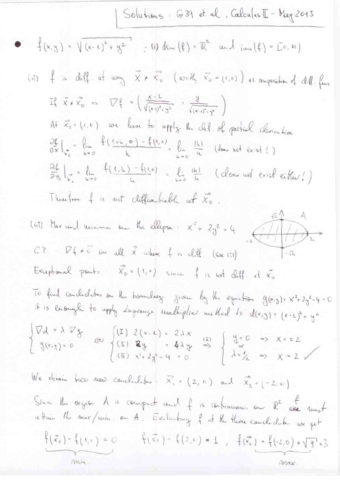 Solutions : G39 et al. Calculus II - May 2013
f(x,y) = √((x-1)²+y²) (i) dom(f) = ℝ² and im(f) = [0,∞)
(ii) f is diff. at any x⃗ ≠ x⃗₀ (with x⃗₀=(1,0)) as composition of diff. func
If x⃗ ≠ x⃗₀ ⇒ ∇f = ( (x-1)/√((x-1)²+y²) , y/√((x-1)²+y²) )
At x⃗₀ = (1,0) we have to apply the def of partial derivative
∂f/∂x |x⃗₀ = lim h→0 (f(1+h,0) - f(1,0))/h = lim h→0 |h|/h (does not exist!)
∂f/∂y |x⃗₀ = lim h→0 (f(1,h) - f(1,0))/h = lim h→0 |h|/h (does not exist either!)
Therefore f is not differentiable at x⃗₀.
(iii) Max and minimum on the ellipse: x²+2y²=4
A
√2
2
-√2
CP: ∇f ≠ 0⃗ in all x⃗ where f is diff.
Exceptional points: x⃗₀ = (1,0) since f is not diff. at x⃗₀
To find candidates on the boundary given by the equation g(x,y) = x²+2y²-4=0
it is enough to apply Lagrange multiplier method to d(x,y) = (x-1)²+y²
{ ∇d = λ ∇g
g(x,y) = 0
or
(I) 2(x-1) = 2λx
(II) 2y = 4λy
(III) x²+2y²-4 = 0
(II) ⇒
y=0 ⇒ x=±2
or
λ=1/2 ⇒ x=2 ✓
We obtain two new candidates x⃗₁ = (2,0) and x⃗₂ = (-2,0)
Since the region A is compact and f is continuous on ℝ² f must
attain the max/min on A. Evaluating f at the three candidates we get
f(x⃗₀) = f(1,0) = 0 f(x⃗₁) = f(2,0) = 1 , f(x⃗₂) = f(-2,0) = √9 = 3
min
max